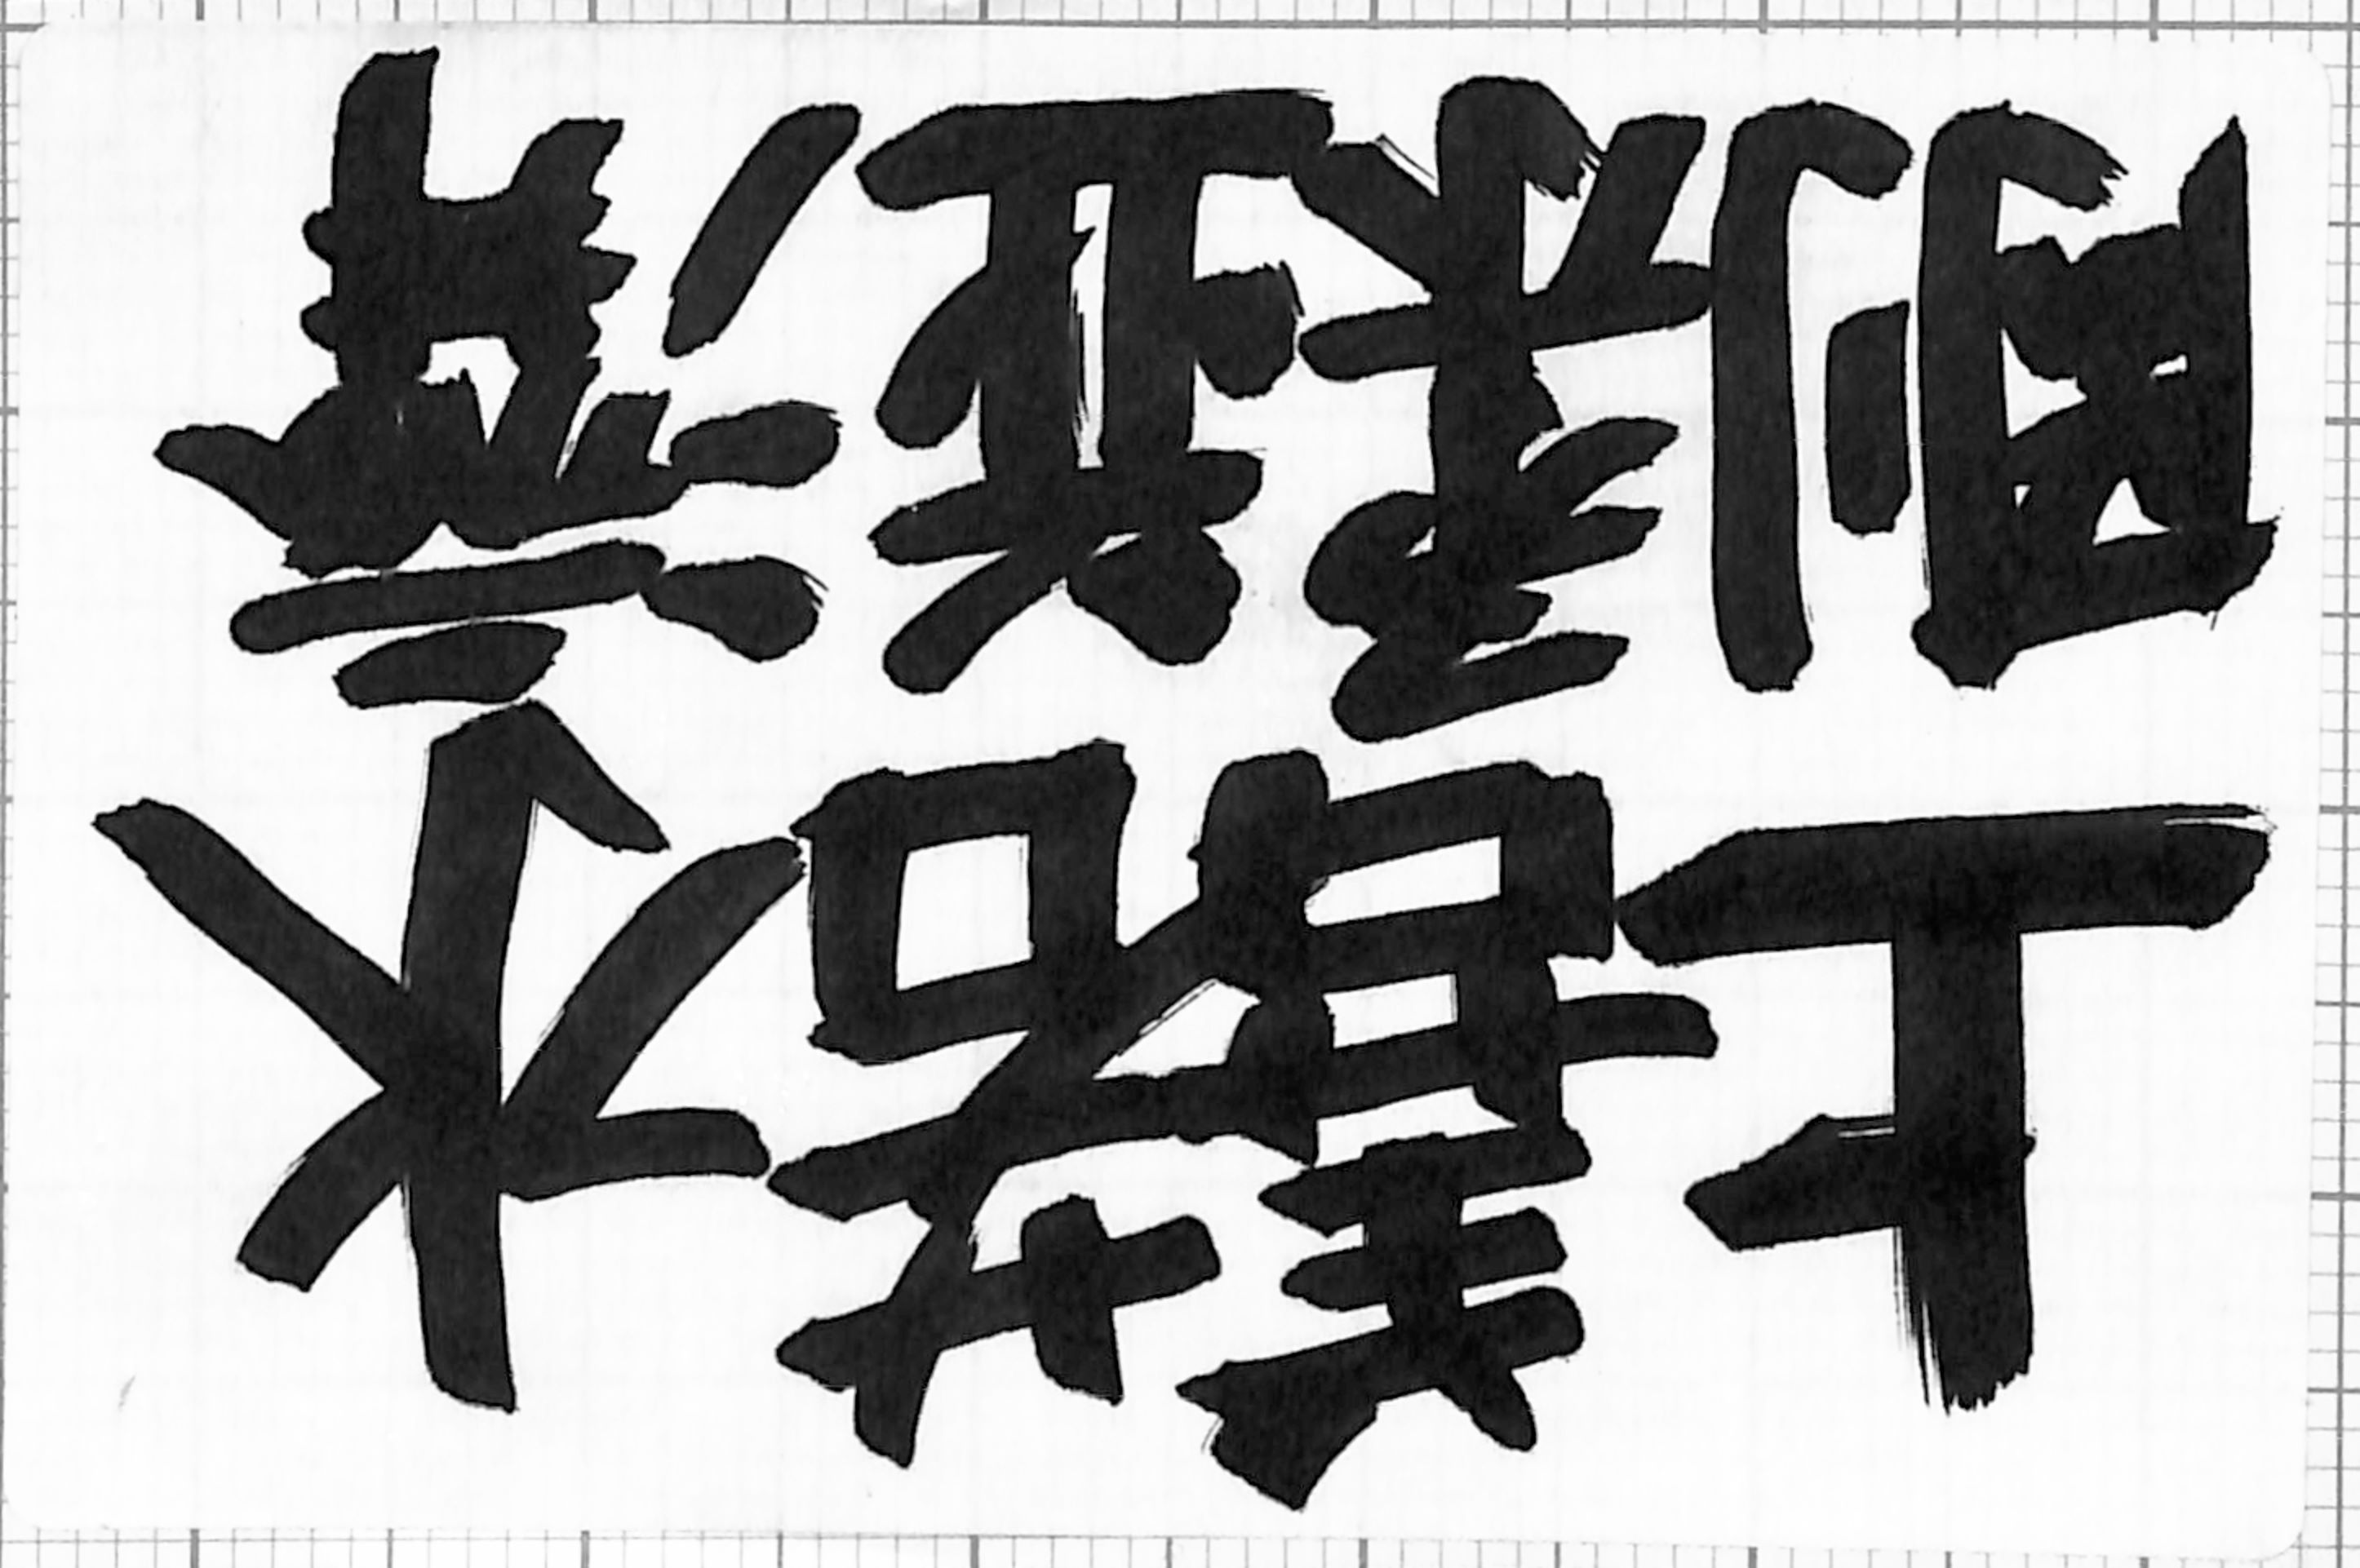 上善若水
剛柔並濟